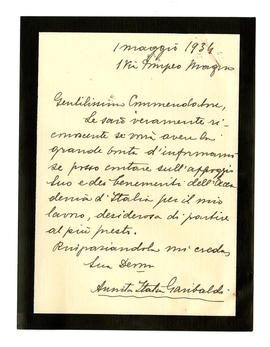 1 maggio 1936
Gentilissimo Commendatore,
Le sarò veramente ri-
conoscente se vorrà avere la
grande bontà d'informarmi
se posso contare sull'appoggio
Suo e dei benemeriti dell'Acca
demia d'Italia per il mio
lavoro, desiderosa di partire
al più presto.
Ringraziandola mi creda,
Sua Dev.ma
Annita Italia Garibaldi